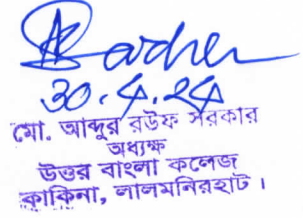 30.4.24
মো. আব্দুর রউফ সরকার
অধ্যক্ষ
উত্তর বাংলা কলেজ
কাকিনা, লালমনিরহাট।